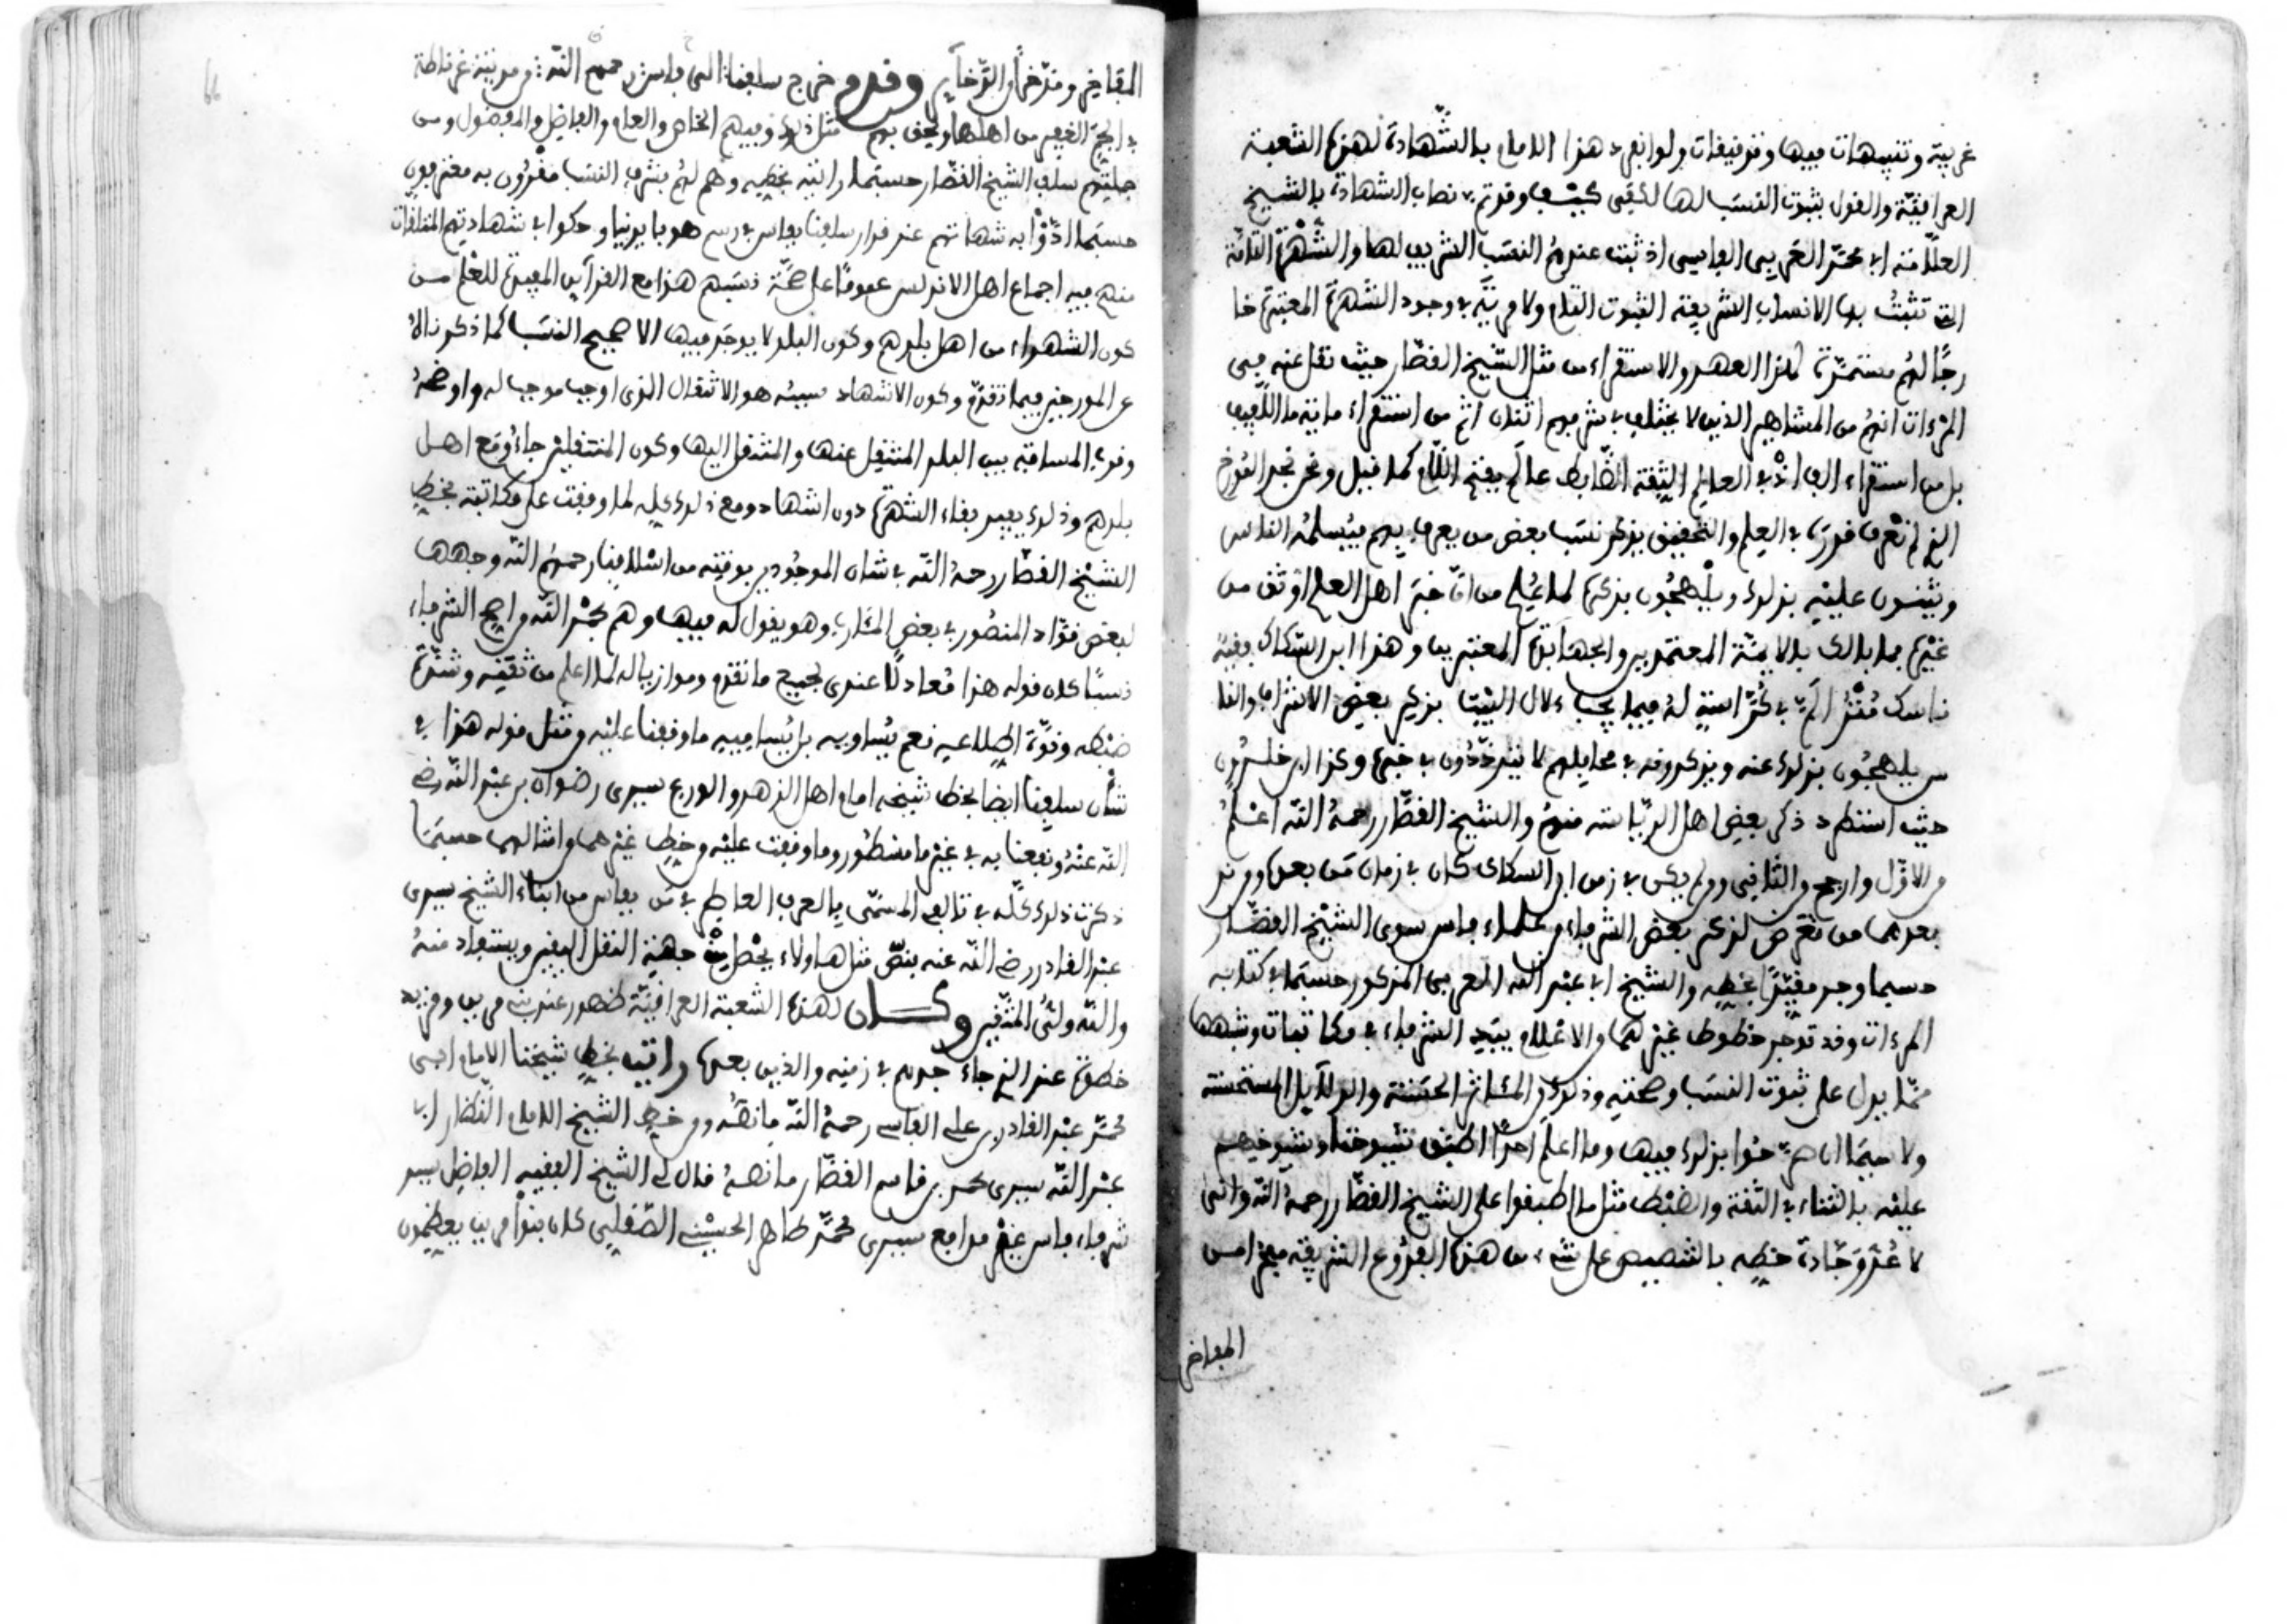 غريبة وتنبيهات فيها وتوفيقات ولو انفرد هذا الامام بالشهادة لهذه الشعبة
العراقية والقول بثبوت النسب لها لكفى كيف وقد تم نصاب الشهادة بالشيخ
العلامة ابي محمد العربي الفاسي اذ ثبت عندهم النسب الشريف لها والشهرة الثلاثة
التي تثبت بها الانساب الشريفة الثبوت التام ولا مرية في وجود الشهرة المعتبرة خا
رجا لهم مستمرة لهذا العهد والاستقراء من مثل الشيخ القصار حيث نقل عنه في
المرءات انهم من المشاهير الذين لا يختلف في شرفهم اثنان اتم من استقراء مائة ما اللفيف
بل من استقراء الف اذ في العالم الثقة الضابط عالم يفتح الله كما قيل ونحن نجد المورخ
الذي لم نعرف قدره في العلم والتحقيق يذكر نسب بعض من يعرف بهم فيسلمه الناس
ويثنون عليه بذلك ويلهجون بذكره لما علم من ان خبر اهل العلم اوثق من
غيره فما بالك بالايمة المعتمدين والجهابذة المعتبرين وهذا ابن السكاك فقيه
ناسك مفتر الي في كراسة له فيما يجب لال البيت بذكر بعض الاشراف والنا
س يلهجون بذلك عنه ويذكرونه في محافلهم لا يترددون في خبره وكذا ابن خلدون
حيث استطرد ذكر بعض اهل الرياسة منهم والشيخ القصار رحمه الله اعلم
من الاول وارجح من الثاني ولم يكن في زمن ابن السكاك كان في زمان من بعده ومن
بعدهما من تعرض لذكر بعض الشرفاء من علماء فاس سوى الشيخ القصار
حسبما وجد مقيدا بخطه والشيخ ابي عبد الله العربي المذكور حسبما في كتابه
المرءات وقد توجد خطوط غيرهما والاعلام ببيد الشرفاء في مكاتبات وشبهها
مما يدل على ثبوت النسب وصحته وذلك من المئاثر الحسنة والدلايل المستحسنة
ولا سيما ان صرحوا بذلك فيها وما اعلم احدا اطبق شيوخنا وشيوخهم
عليه بالثناء في الثقة والضبط مثل ما اطبقوا على الشيخ القصار رحمه الله واني
لا عد وجادة خطه بالتنصيص على شيء من هذه الفروع الشريفة من امس
المفاخر
المفاخر ومدخر الذخاير وقدم خرج سلفنا الى فاس رحمهم الله من مدينة غرناطة
في الجم الغفير من اهلها ولحق بهم مثل ذلك وفيهم الخاص والعام والفاضل والمفضول ومن
جملتهم سلف الشيخ القصار حسبما رايته بخطه وهم لهم بشرف النسب مقرون به معترفون
حسبما ادوا به شهادتهم عند قرار سلفنا بفاس في رسم هو بايدينا وحكوا في شهادتهم المتلقات
منهم فيه اجماع اهل الاندلس عموما على صحة نسبهم هذا مع القراين المفيدة للعلم من
كون الشهداء من اهل بلدهم وكون البلد لا يوجد فيها الا صحيح النسب كما ذكر ذلك
عن المورخين فيما تقدم وكون الاشهاد سببه هو الانتقال الذي اوجب موجبا له واوضحه
وقرب المسافة بين البلد المنتقل عنها والمنتقل اليها وكون المنتقلين جاءوا مع اهل
بلدهم وذلك يفيد بقاء الشهرة دون اشهاد ومع ذلك كله لما وقفت على مكاتبة بخط
الشيخ القصار رحمه الله في شان الموجودين بوقته من اسلافنا رحمهم الله وجهها
لبعض قواد المنصور في بعض المئارب وهو يقول له فيها وهم بحمد الله من اصح الشرفاء
نسبا كان قوله هذا معادلا عندي لجميع ما تقدم وموازيا له لما اعلم من ثقته وشدة
ضبطه وقوة اطلاعه نعم يساويه بل يساميه ما وقفنا عليه من مثل قوله هذا في
شان سلفنا ايضا بخط شيخه امام اهل الزهد والورع سيدي رضوان بن عبد الله رضي
الله عنه ونفعنا به في غير ما مسطور وما وقفت عليه من خط غيرهما وامثالهما حسبما
ذكرت ذلك كله في تاليف المسمى بالعرف العاطر في من بفاس من ابناء الشيخ سيدي
عبد القادر رضي الله عنه بنص مثل هاولاء بخط جهة النقل اليقين ويستفاد منه
والله ولي المتقين وكان لهذه الشعبة العراقية ظهور عند بني مرين ومزيد
حظوة عند الذي جاء جدهم في زمنه والذين بعده رايت بخط شيخنا الامام ابي
محمد عبد القادر بن علي الفاسي رحمه الله ما نصه ومن خط الشيخ الامام القصار ابي
عبد الله سيدي محمد بن قاسم القصار ما نصه قال لي الشيخ الفقيه الفاضل سيد
شرفاء فاس غير مدافع سيدي محمد طاهر الحسيني الصقلي كان بنوا مرين يعظمون